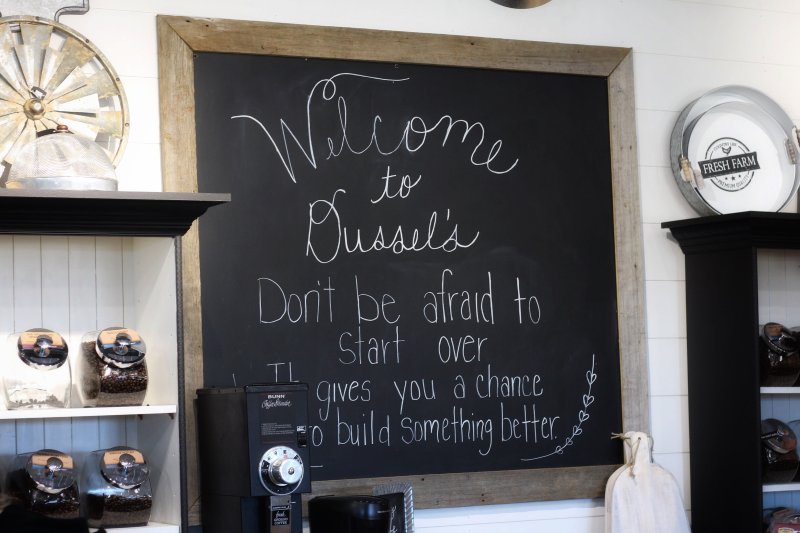 Welcome
to
Dussel's
Don't be afraid to
start over
It gives you a chance
to build something better.
FRESH FARM
PREMIUM QUALITY
BUNN